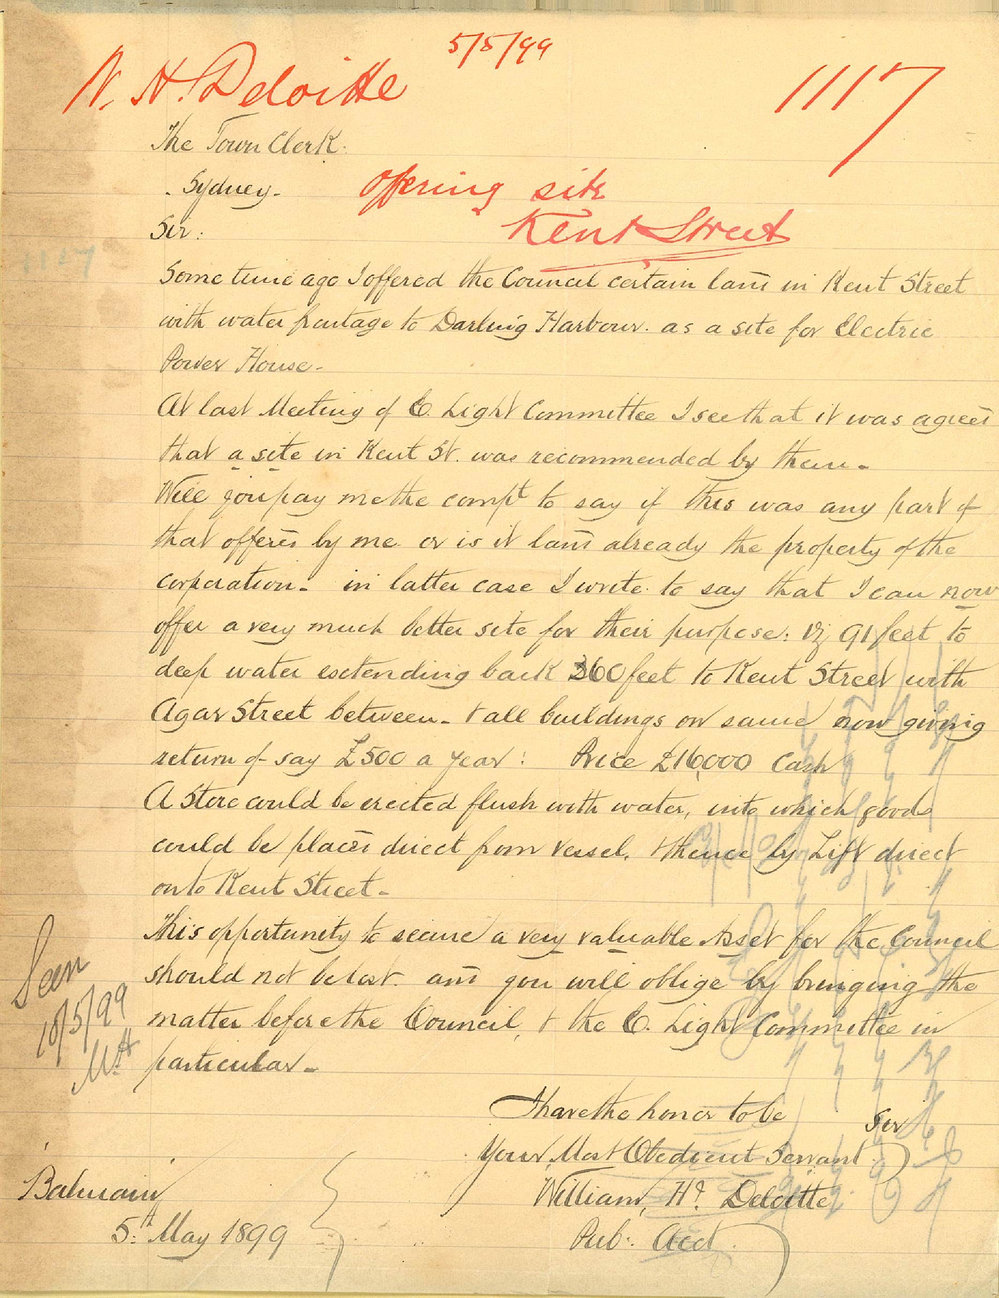 5/5/99
W. H. Deloitte
1117
The Town Clerk.
Sydney.
Offering site
Kent Street
Sir:
1117
Some time ago I offered the Council certain land in Kent Street
with water frontage to Darling Harbour. as a site for Electric
Power House.
At last Meeting of E. Light Committee I see that it was agreed
that a site in Kent St. was recommended by them.
Will you pay me the compt to say if this was any part of
that offered by me or is it land already the property of the
corporation. in latter case I write to say that I can now
offer a very much better site for their purpose: viz 91 feet to
deep water extending back 360 feet to Kent Street with
Agar Street between. & all buildings on same now giving
return of say £500 a year: Price £16,000 Cash
A Store could be erected flush with water, into which goods
could be placed direct from vessel, & thence by Lift direct
onto Kent Street.
This opportunity to secure a very valuable Asset for the Council
should not be lost. and you will oblige by bringing the
matter before the Council, & the E. Light Committee in
particular.
Seen
10/5/99
I have the honor to be
Sir
Your Most Obedient Servant
William Hy. Deloitte
Pub. Acct.
Balmain
5th May 1899